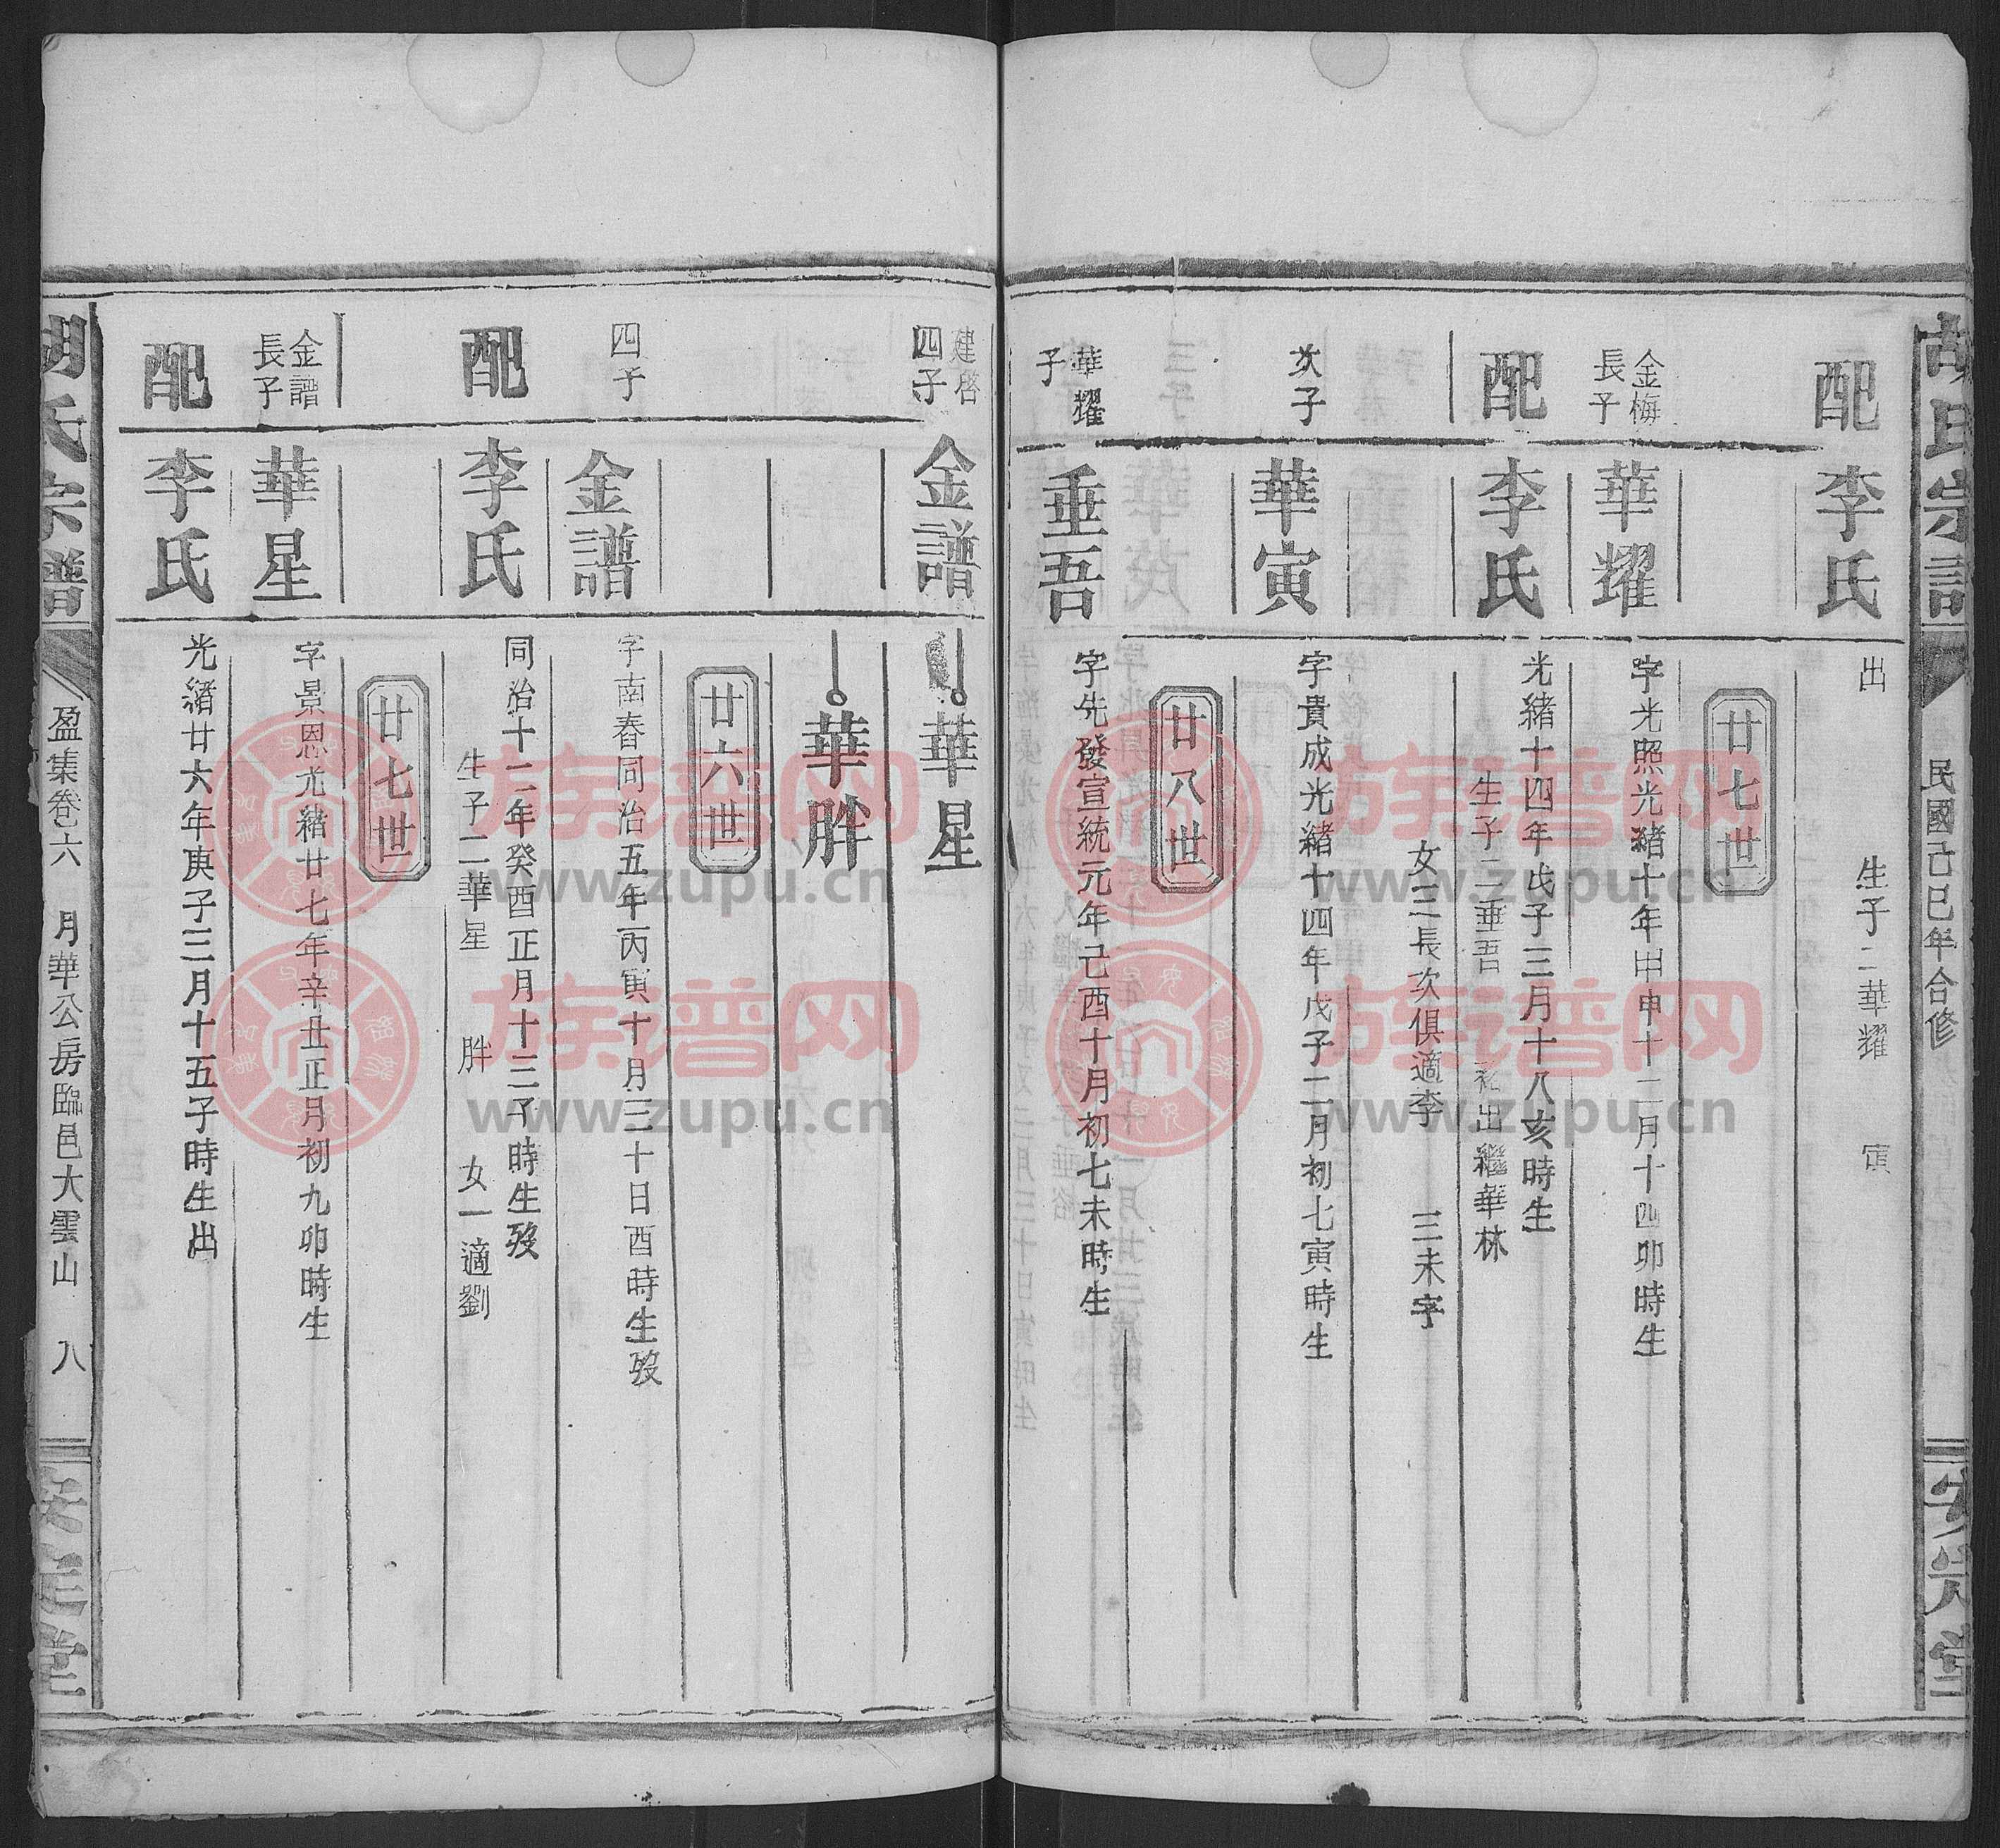 胡氏宗譜
民國己巳年合修
安定堂
配
李氏
出
生子二華耀 寅
廿七世
金梅
長子
華耀
字光照光緒十年甲申十二月十四卯時生
配
李氏
光緒十四年戊子三月十八亥時生
生子二垂吾 裕出繼華林
女三長次俱適李 三未字
次子
華寅
字貴成光緒十四年戊子二月初七寅時生
廿八世
華耀
子
垂吾
字先發宣統元年己酉十月初七未時生
建啓
四子
金譜
華星
華胖
廿六世
四子
金譜
字南春同治五年丙寅十月三十日酉時生歿
配
李氏
同治十二年癸酉正月十三子時生歿
生子二華星 胖 女一適劉
廿七世
金譜
長子
華星
字景恩光緒廿七年辛丑正月初九卯時生
配
李氏
光緒廿六年庚子三月十五子時生出
胡氏宗譜
盈集卷六 月華公房臨邑大雲山 八
安定堂
族谱网
www.zupu.cn
族谱网
www.zupu.cn
族谱网
www.zupu.cn
族谱网
www.zupu.cn